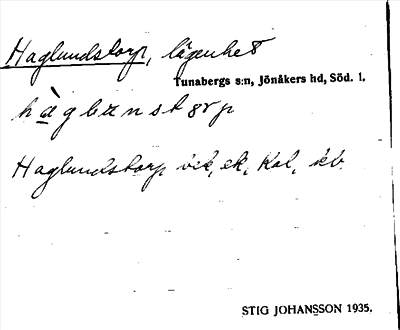 Haglundstorp, lägenhet
Tunabergs s:n, Jönåkers hd, Söd. l.
Haglundstorp vek, ek, Kal, kb.
STIG JOHANSSON 1935.